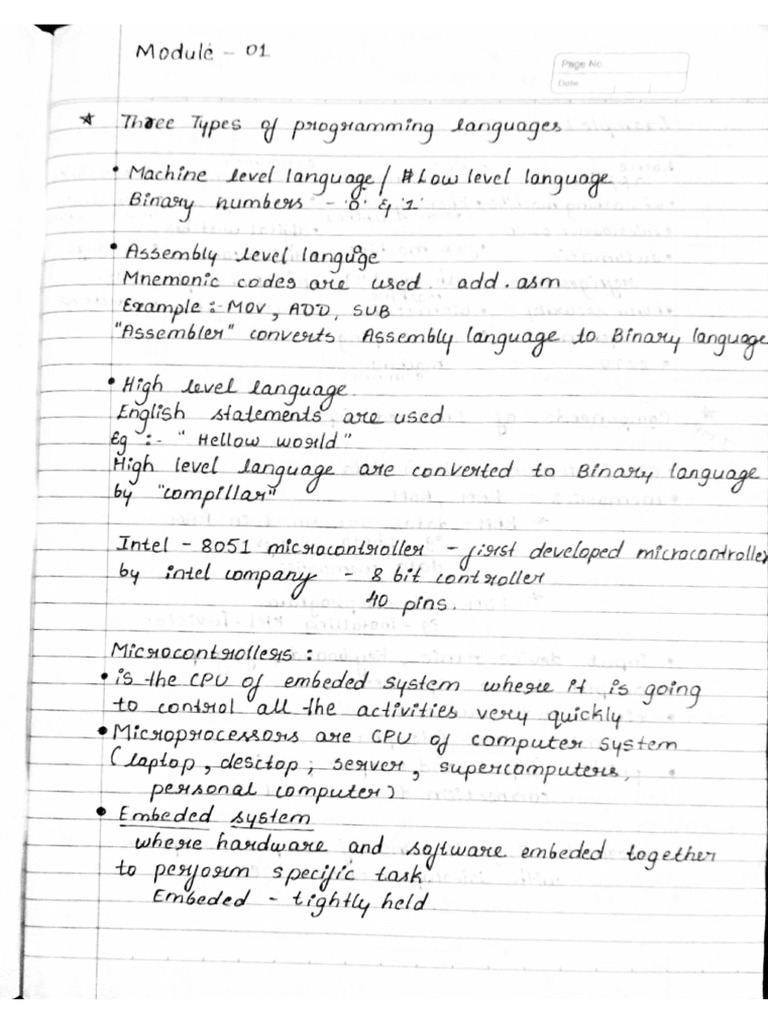 Module - 01
Page No.
Date
* Three Types of programming languages
• Machine level language / # Low level language
Binary numbers - '0' & '1'
• Assembly level languge
Mnemonic codes are used. add.asm
Example :- MOV, ADD, SUB
"Assembler" converts Assembly language to Binary language
• High level language.
English statements are used
Eg :- " Hellow world"
High level language are converted to Binary language
by "compillar"
Intel - 8051 microcontroller - first developed microcontroller
by intel company - 8 bit controller
40 pins.
Microcontrollers :
• is the CPU of embeded system where it is going
to control all the activities very quickly
• Microprocessors are CPU of computer system
(laptop, desctop, server, supercomputers,
personal computer)
• Embeded system
where hardware and software embeded together
to perform specific task
Embeded - tightly held